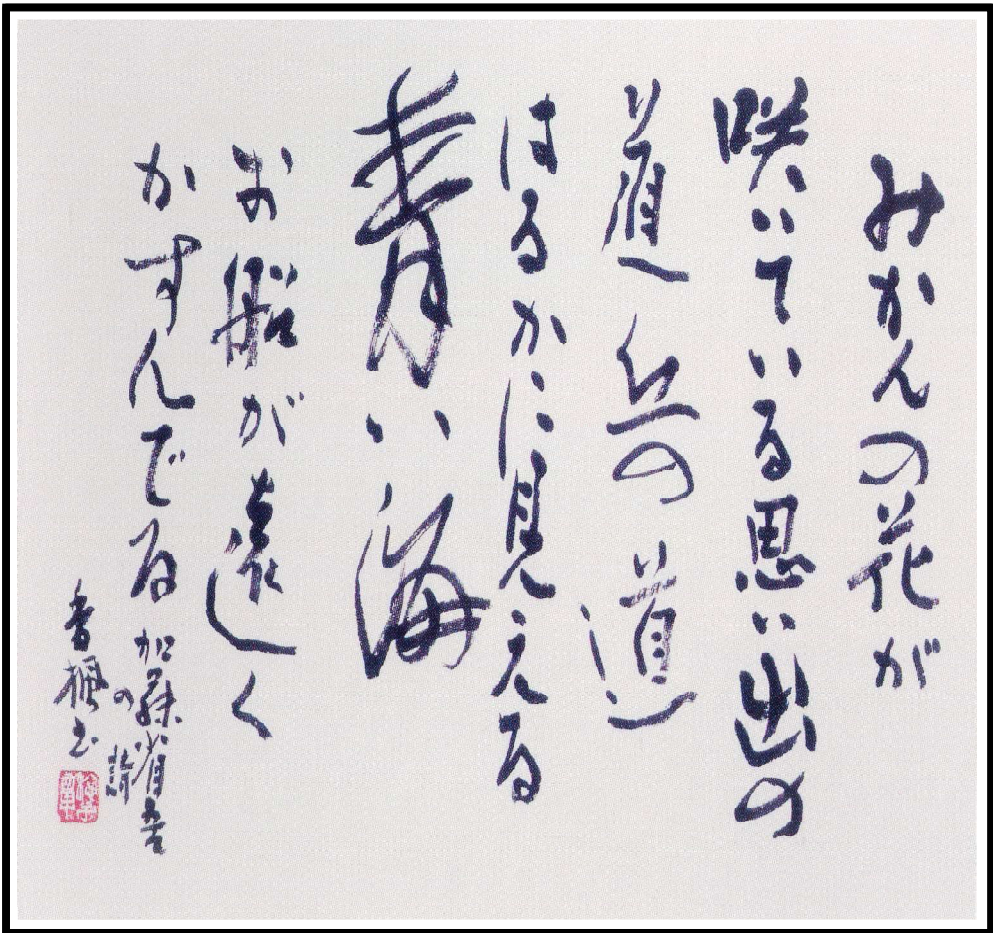 みかんの花が
咲いている思い出の
道丘の道
はるかに見える
青い海
お船が遠く
かすんでる
加藤省吾
の詩
香楓書